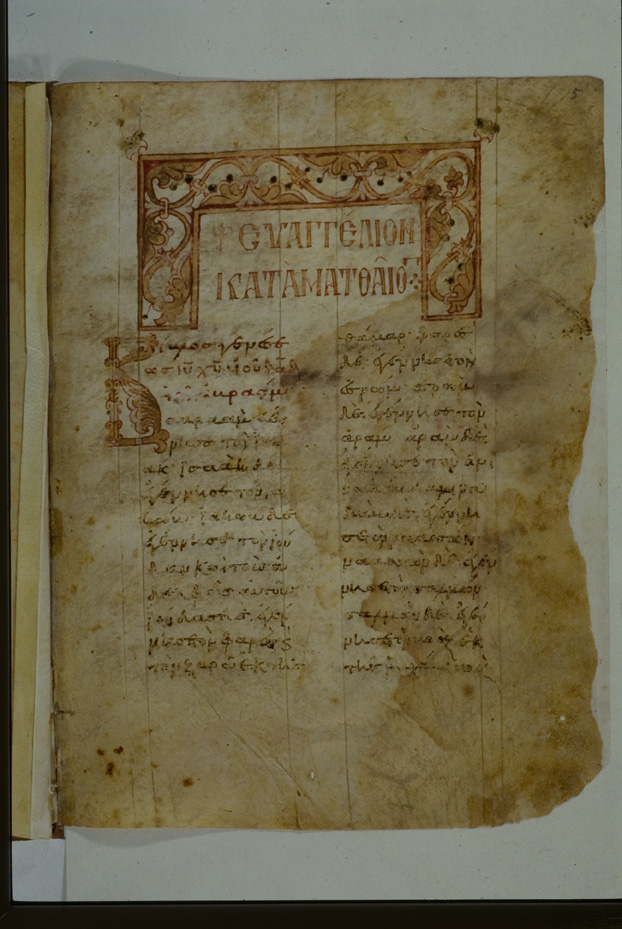 5
ΕΥΑΓΓΕΛΙΟΝ
ΚΑΤΑ ΜΑΤΘΑΙΟΝ
Βίβλος γενέσε
ως ιυ χυ υιου δαδ
υιου αβραάμ
αβρααμ ἐγέ
ννησε τον ισα
ακ· ἰσαὰκ δὲ
ἐγέννησε τον ια
κωβ· ἰακωβ δὲ
ἐγέννησε τον ιού
δαν καὶ τοὺς ἀ
δελφοὺς αὐτοῦ·
ἰούδας δὲ ἐγέ
ννησε τὸν φαρὲς
καὶ τον ζαρὰ ἐκ τῆς
θάμαρ· φαρὲς
δὲ ἐγέννησε τὸν
ἐσρώμ· ἐσρὼμ
δὲ ἐγέννησε τὸν
ἀράμ· ἀρὰμ δὲ
ἐγέννησε τὸν ἀμι
ναδάβ· ἀμινα
δὰβ δὲ ἐγέννη
σε τον ναασσών·
ναασσὼν δὲ ἐγέν
νησε τὸν σαλμών·
σαλμὼν δὲ ἐγέν
νησε τὸν βοὸζ ἐκ
τῆς ῥαχάβ·